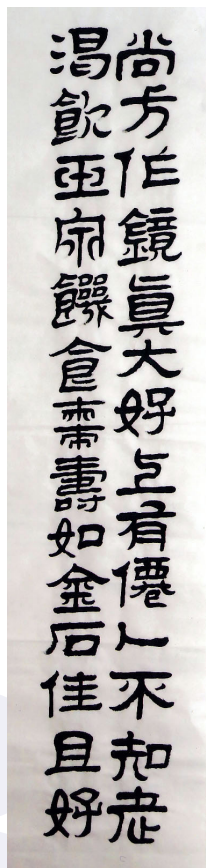 尚方作鏡眞大好上有僊人不知老
渴飲玉泉饑食棗壽如金石佳且好